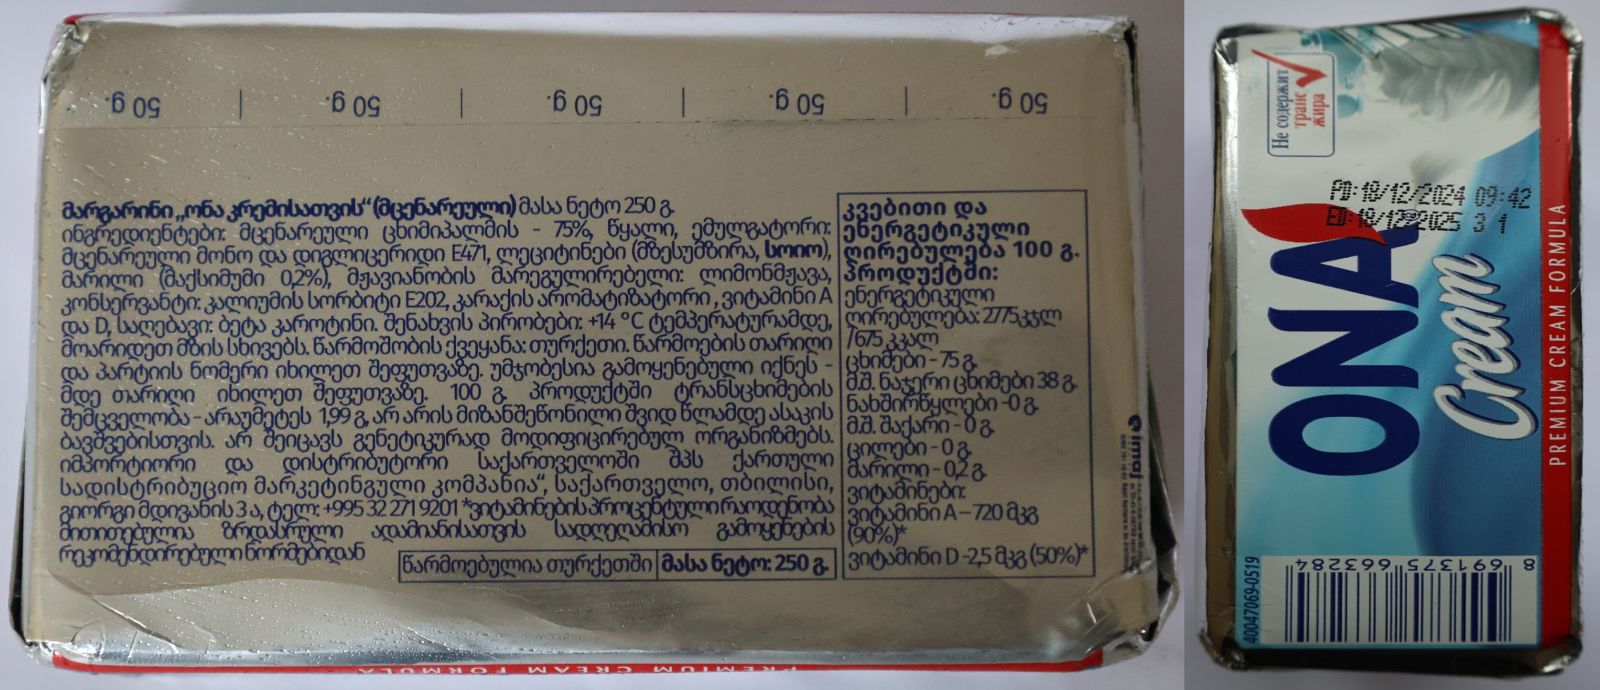 50 g.
50 g.
50 g.
50 g.
50 g.
მარგარინი „ონა კრემისათვის“ (მცენარეული) მასა ნეტო 250 გ.
ინგრედიენტები: მცენარეული ცხიმიპალმის - 75%, წყალი, ემულგატორი:
მცენარეული მონო და დიგლიცერიდი E471, ლეციტინები (მზესუმზირა, სოიო),
მარილი (მაქსიმუმი 0,2%), მჟავიანობის მარეგულირებელი: ლიმონმჟავა,
კონსერვანტი: კალიუმის სორბიტი E202, კარაქის არომატიზატორი, ვიტამინი A
და D, საღებავი: ბეტა კაროტინი. შენახვის პირობები: +14 °C ტემპერატურამდე,
მოარიდეთ მზის სხივებს. წარმოშობის ქვეყანა: თურქეთი. წარმოების თარიღი
და პარტიის ნომერი იხილეთ შეფუთვაზე. უმჯობესია გამოყენებული იქნეს -
მდე თარიღი იხილეთ შეფუთვაზე. 100 გ. პროდუქტში ტრანსცხიმების
შემცველობა - არაუმეტეს 1,99 გ, არ არის მიზანშეწონილი შვიდ წლამდე ასაკის
ბავშვებისთვის. არ შეიცავს გენეტიკურად მოდიფიცირებულ ორგანიზმებს.
იმპორტიორი და დისტრიბუტორი საქართველოში შპს ქართული
სადისტრიბუციო მარკეტინგული კომპანია“, საქართველო, თბილისი,
გიორგი მდივანის 3 ა, ტელ: +995 32 271 9201 *ვიტამინების პროცენტული რაოდენობა
მითითებულია ზრდასრული ადამიანისათვის სადღეღამისო გამოყენების
რეკომენდირებული ნორმებიდან
წარმოებულია თურქეთში მასა ნეტო: 250 გ.
კვებითი და
ენერგეტიკული
ღირებულება 100 გ.
პროდუქტში:
ენერგეტიკული
ღირებულება: 2775კჯლ
/675 კკალ
ცხიმები - 75 გ.
მ.შ. ნაჯერი ცხიმები 38 გ.
ნახშირწყლები -0 გ.
მ.შ. შაქარი - 0 გ.
ცილები - 0 გ.
მარილი - 0,2 გ.
ვიტამინები:
ვიტამინი A – 720 მკგ
(90%)*
ვიტამინი D -2,5 მკგ (50%)*
elmaj
PREMIUM CREAM FORMULA
Не содержит
транс
жира
PD:18/12/2024 09:42
18/12/2025 3 1
ONA
Cream
PREMIUM CREAM FORMULA
40047069-0519
8 691375 663284